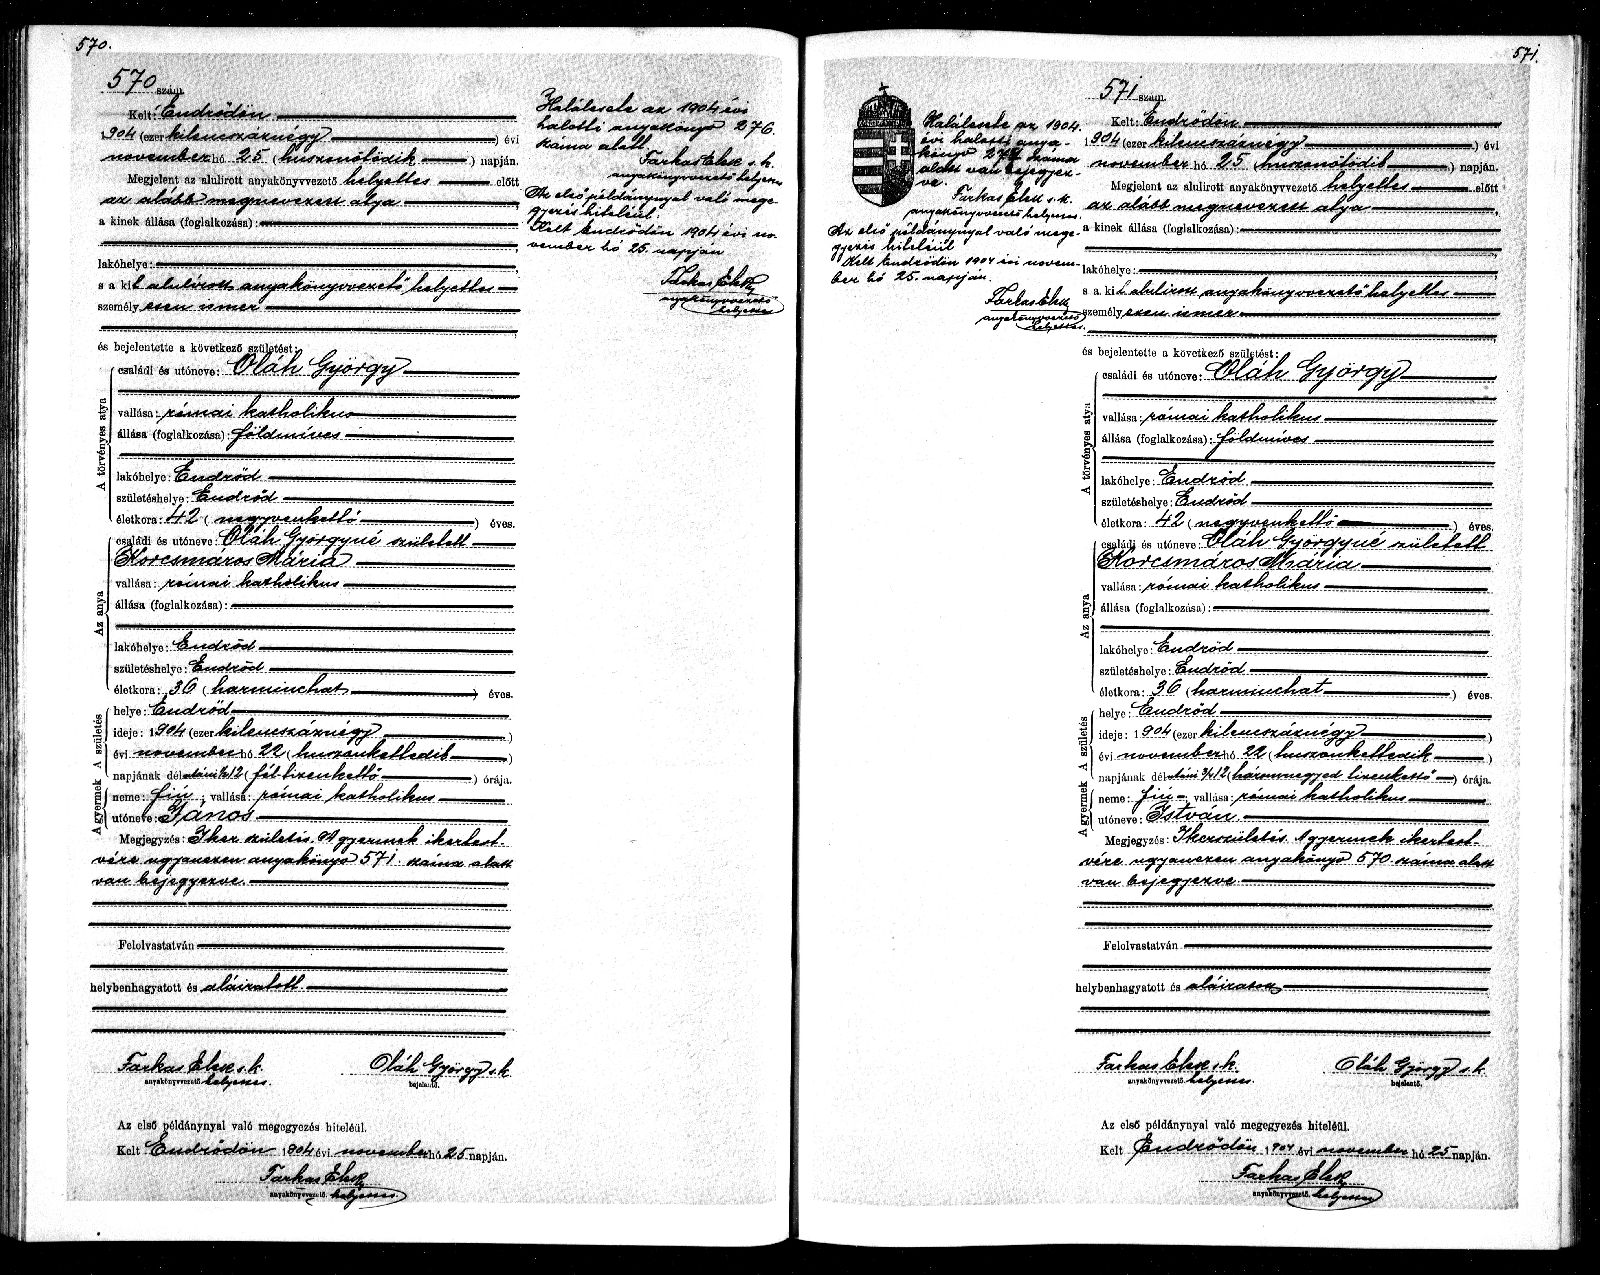 570.
570 szám.
Kelt: Endrődön
1904 (ezer kilenczáznégy) évi
november hó 25 (huszonötödik) napján.
Megjelent az alulirott anyakönyvvezető helyettes előtt
az alább megnevezett atya
a kinek állása (foglalkozása):
lakóhelye:
s a kit alulirott anyakönyvvezető helyettes
személyesen ismer
és bejelentette a következő születést:
A törvényes atya
családi és utóneve: Oláh György
vallása: római katholikus
állása (foglalkozása): földmíves
lakóhelye: Endrőd
születéshelye: Endrőd
életkora: 42 (negyvenkettő) éves.
Az anya
családi és utóneve: Oláh Györgyné született
Korcsmáros Mária
vallása: római katholikus
állása (foglalkozása):
lakóhelye: Endrőd
születéshelye: Endrőd
életkora: 36 (harminchat) éves.
A születés
helye: Endrőd
ideje: 1904 (ezer kilenczáznégy)
évi november hó 22 (huszonkettedik)
napjának délutáni ½12 (fél tizenkettő) órája.
A gyermek
neme: fiú; vallása: római katholikus
utóneve: János
Megjegyzés: Iker születés. A gyermek ikertest-
vére ugyanezen anyakönyv 571. száma alatt
van bejegyezve.
Felolvastatván
helybenhagyatott és aláiratott
Farkas Elek s. k. Oláh György s. k.
anyakönyvvezető helyettes. bejelentő.
Az első példánynyal való megegyezés hiteléül.
Kelt Endrődön 1904 évi november hó 25 napján.
Farkas Elek
anyakönyvvezető helyettes
Halálesete az 1904 évi
halotti anyakönyv 276.
száma alatt
Farkas Elek s. k.
anyakönyvvezető helyettes
Az első példánynyal való mege-
gyezés hiteléül.
Kelt Endrődön 1904 évi no-
vember hó 25. napján
Farkas Elek
anyakönyvvezető
helyettes
571.
Halálesete az 1904.
évi halotti anya-
könyv száma
alatt van bejegyez-
ve.
Farkas Elek s. k.
anyakönyvvezető helyettes.
Az első példánynyal való mege-
gyezés hiteléül
Kelt Endrődön 1904 évi novem-
ber hó 25. napján.
Farkas Elek
anyakönyvvezető
helyettes.
571 szám.
Kelt: Endrődön
1904 (ezer kilenczáznégy) évi
november hó 25 (huszonötödik) napján.
Megjelent az alulirott anyakönyvvezető helyettes előtt
az alább megnevezett atya
a kinek állása (foglalkozása):
lakóhelye:
s a kit alulirott anyakönyvvezető helyettes
személyesen ismer
és bejelentette a következő születést:
A törvényes atya
családi és utóneve: Oláh György
vallása: római katholikus
állása (foglalkozása): földmíves
lakóhelye: Endrőd
születéshelye: Endrőd
életkora: 42 (negyvenkettő) éves.
Az anya
családi és utóneve: Oláh Györgyné született
Korcsmáros Mária
vallása: római katholikus
állása (foglalkozása):
lakóhelye: Endrőd
születéshelye: Endrőd
életkora: 36 (harminchat) éves.
A születés
helye: Endrőd
ideje: 1904 (ezer kilenczáznégy)
évi november hó 22 (huszonkettedik)
napjának délutáni ¾12 (háromnegyed tizenkettő) órája.
A gyermek
neme: fiú vallása: római katholikus
utóneve: István
Megjegyzés: Ikerszületés A gyermek ikertest-
vére ugyanezen anyakönyv 570. száma alatt
van bejegyezve
Felolvastatván
helybenhagyatott és aláiratott
Farkas Elek s. k. Oláh György s. k.
anyakönyvvezető helyettes. bejelentő.
Az első példánynyal való megegyezés hiteléül.
Kelt Endrődön 1904 évi november hó 25 napján.
Farkas Elek
anyakönyvvezető helyettes